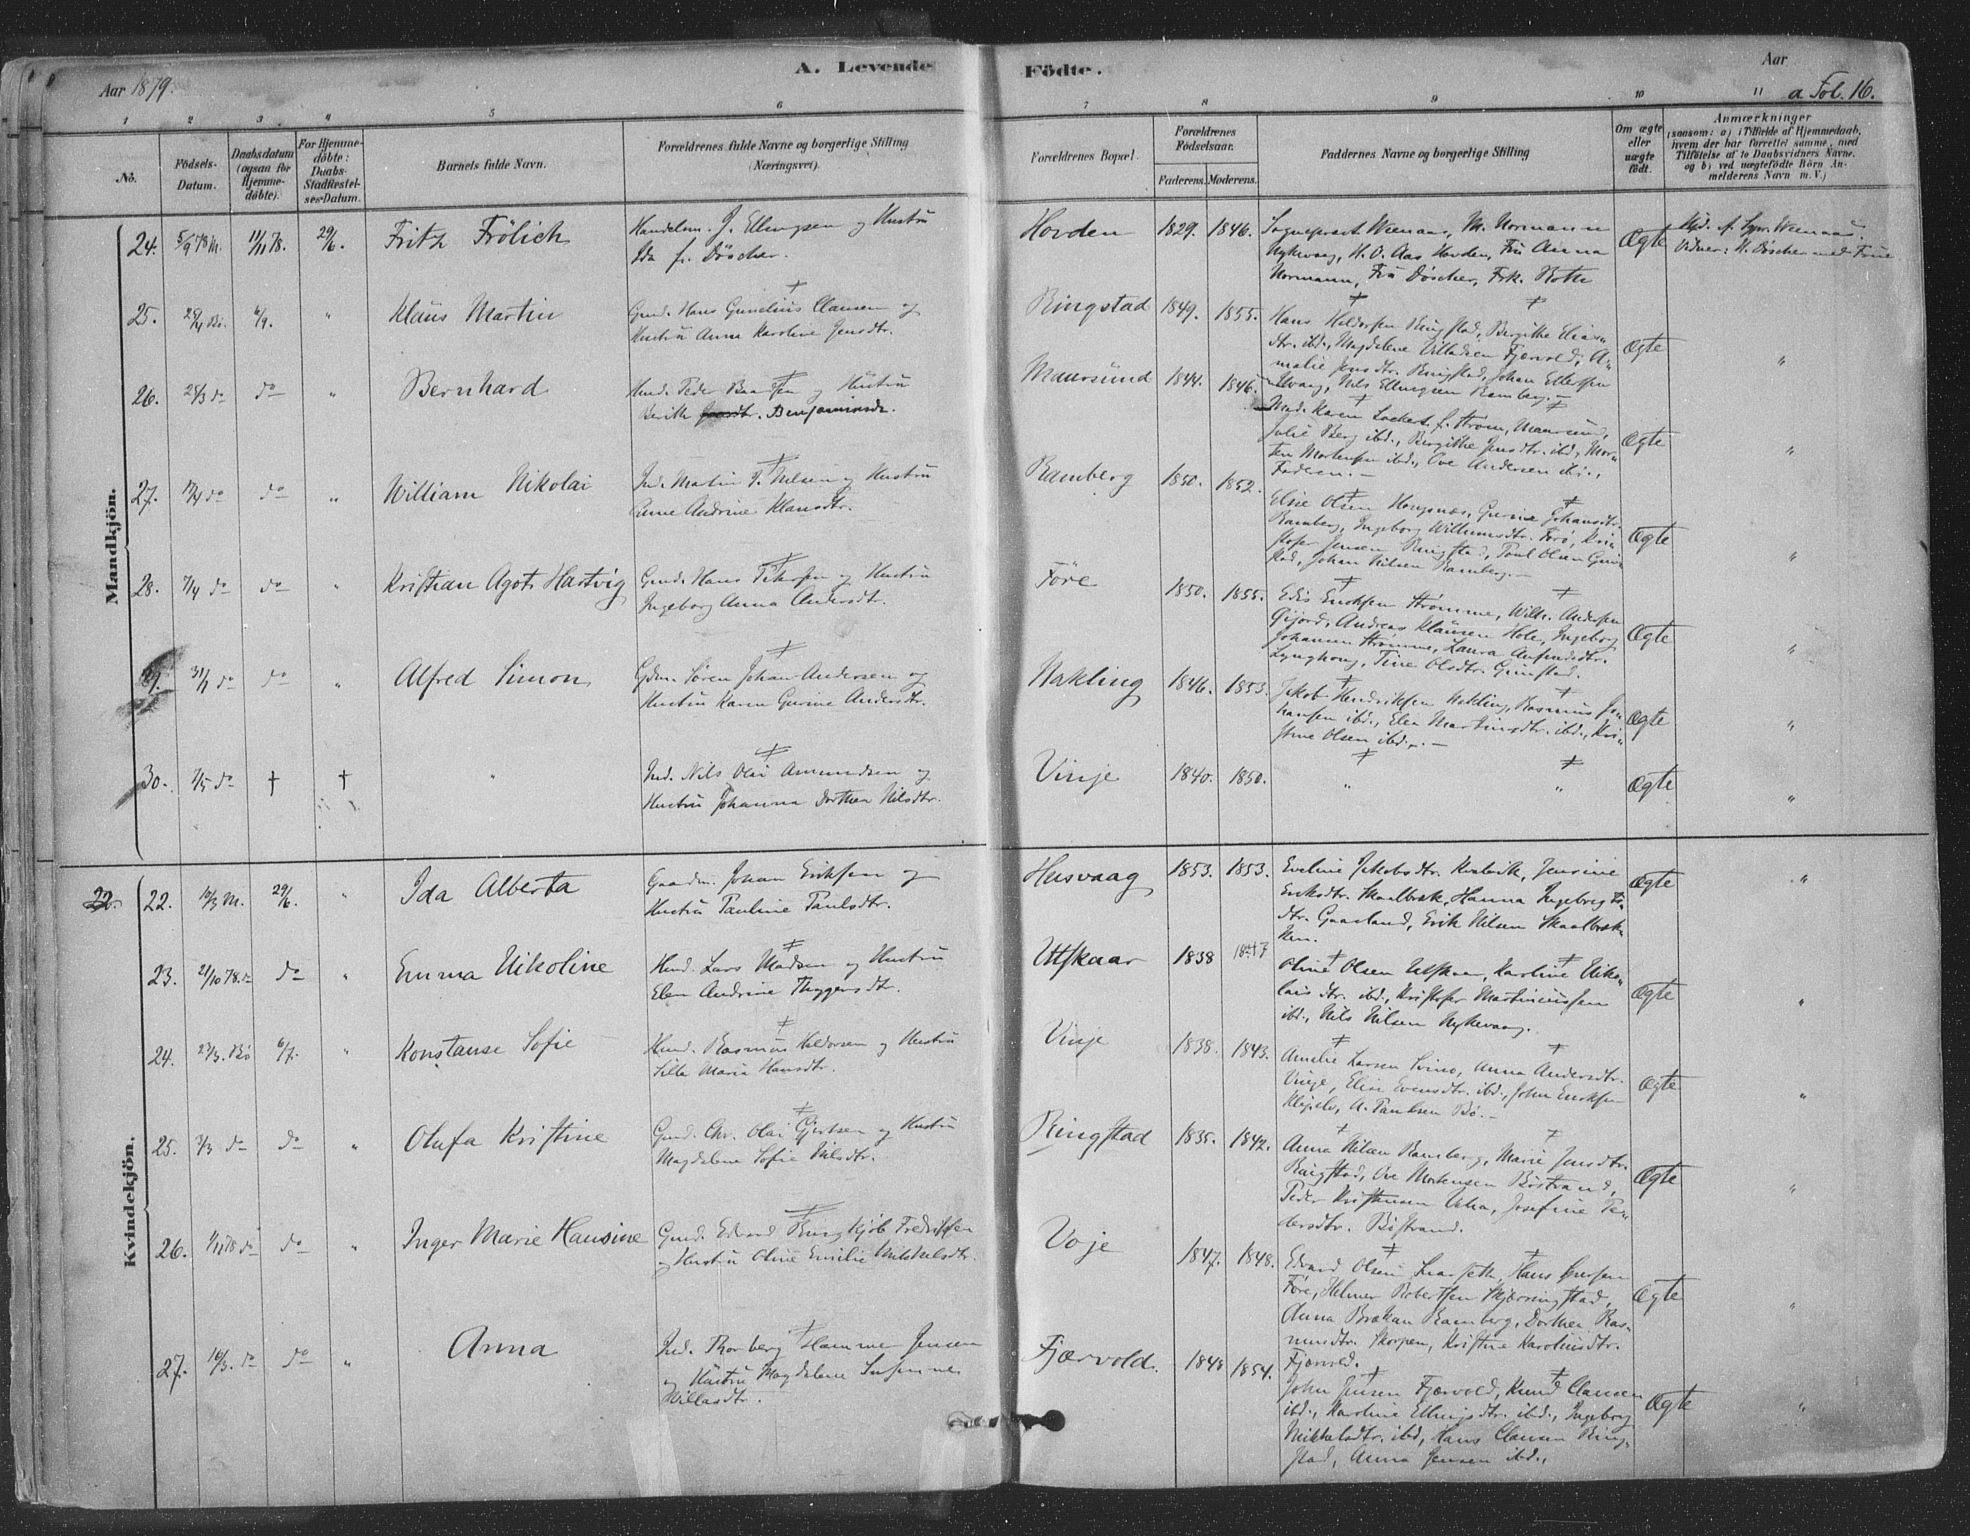 Aar 1879.
A. Levende Födte.
Aar
a Fol. 16.
1 2 3 4 5 6 7 8 9 10 11
No.
Födsels-Datum.
Daabsdatum (ogsaa for Hjemmedöbte).
For Hjemmedöbte: Daabs-Stadfæstelses-Datum.
Barnets fulde Navn.
Forældrenes fulde Navne og borgerlige Stilling (Næringsvei).
Forældrenes Bopæl.
Forældrenes Födselsaar.
Faderens. Moderens.
Faddernes Navne og borgerlige Stilling
Om ægte eller uægte födt.
Anmærkninger
(saasom: a) i Tilfælde af Hjemmedaab, hvem der har forrettet samme, med Tilföielse af to Daabsvidners Navne. og b) ved uægtefödte Börn Anmelderens Navn m. V.)
Mandkjön.
24. 5/9 78 M. 11/11 78. 29/6. Fritz Frölich
Handelsm. J. Ellingsen og Hustru
Ida f. Döscher.
Hovden 1829. 1846.
Sogneprest Weenaas, M. Normann
Nykvaag, H. O. Aas Hovden, Fru Anna
Normann, Fru Döscher, Frk. Roth
Ægte
Vidner: H. Döscher med Frue
25. Bö. 6/9. " Klaus Martin
Gmd. Hans Gunelius Clausen og
Hustru Anna Karoline Jensdtr.
Ringstad 1849. 1855.
Hans Heldorsen Ringstad, Bergithe Elias-
dtr. ibd., Magdelene Villadsen Fjærvold, A-
malie Jensdtr. Ringstad, Johan Ellefsen
Nils Ellingsen Ramberg.
Ægte "
26. 25/3 do do " Bernhard
Hmd. Peder Baadsen og Hustru
Berith Benjaminsdr.
Maursund 1844. 1846.
Mad. Karen Lockert f. Strøm, Maursund,
Julie Berg ibd., Bergithe Jensdtr. ibd., Mor-
ten Mortensen ibd., Ove Andersen ibd.,
Faderen.
Ægte "
27. 17/4 do do " William Nikolai
Ind. Martin P. Nilsen og Hustru
Anne Andrine Klausdtr.
Ramberg 1850. 1852.
Elise Olsen Hougsnæs, Gurine Johansdtr.
Ramberg, Ingeborg Willumsdtr. Förö, Kri-
stofer Jensen Ringstad, Paul Olsen Grim-
stad, Johan Nilsen Ramberg.
Ægte "
28. 7/4 do do " Kristian Agot Hartvig
Gmd. Hans Petersen og Hustru
Ingeborg Anna Andersdtr.
Före 1850. 1855.
Edis Eriksen Strømme, Wilh. Andersen
Gjörd, Andreas Klausen Hole, Ingeborg
Johansen Strømme, Laura Anfindsdtr.
Lynghoug, Tine Olsdtr. Grimstad.
Ægte "
29. do do " Alfred Simon
Gdm. Sören Johan Andersen og
Hustru Karen Gurine Andersdtr.
Nakling 1846. 1853.
Jakob Hendriksen Nakling, Rasmus Jo-
hansen ibd., Elen Martinsdtr. ibd., Kri-
stine Olsen ibd.
Ægte "
30. 1/5 do † † "
Ind. Nils Olai Amundsen og
Hustru Johanna Dorthea Nilsdtr.
Vinje 1840. 1850. " " Ægte "
Kvindekjön.
22. 22. 10/3 M. 29/6. " Ida Alberta
Gaardm. Johan Eriksen og
Hustru Pauline Paulsdtr.
Husvaag 1853. 1853.
Eveline Jakobsdtr. Kvalvik, Jensine
Eriksdtr. Skaalbræk, Hanna Ingebrigts-
dtr. Gaasland, Erik Nilsen Skaalbræk-
ken.
Ægte "
23. 21/10 78. do do " Emma Nikoline
Hmd. Lars Madsen og Hustru
Elen Andrine Thygersdtr.
Utskaar 1838 1847
Oline Olsen Utskaar, Karoline Niko-
laisdtr. ibd., Kristofer Martinussen
ibd., Nils Nilsen Nykevaag.
Ægte "
24. 23/3. Bö 6/7. " Konstanse Sofie
Hmd. Rasmus Heldorsen og Hustru
Silla Maria Hansdtr.
Vinje 1838. 1843.
Amelie Larsen Svino, Anna Andersdtr.
Vinje, Elise Evensdtr. ibd., John Eriksen
A. Paulsen Bö.
Ægte "
25. 3/3 do do " Olufa Kristine
Gmd. Chr. Olai Gjertsen og Hustru
Magdelene Sofie Nilsdtr.
Ringstad 1835. 1842.
Anna Nilsen Ramberg, Marie Jensdtr.
Ringstad, Ove Mortensen Böstrand,
Peder Kristensen Josefine Pe-
dersdtr. Böstrand.
Ægte "
26. 1/11 78 do do " Inger Marie Hansine
Gmd. Edvard Bergkjöb Fredriksen
og Hustru Oline Emilie Mikkelsdtr.
Voje 1847. 1848.
Edvard Olsen Hans Iversen
Före, Helmer Robertsen Skjærringstad,
Anna Brækan Ramberg, Dorthea Ras-
musdtr. Skorpen, Kristine Karolinsdtr.
Fjærvold.
Ægte "
27. 16/3. do do " Anna
Ind. Thorberg Hammer Jensen
og Hustru Magdelene Susanne
Willasdtr.
Fjærvold. 1848 1854.
John Jensen Fjærvold, Knud Clausen
ibd., Karoline Ellingsdtr. ibd., Ingeborg
Mikkelsdtr. ibd, Hans Clausen Ring-
stad, Anna Jensen ibd.,
Ægte "